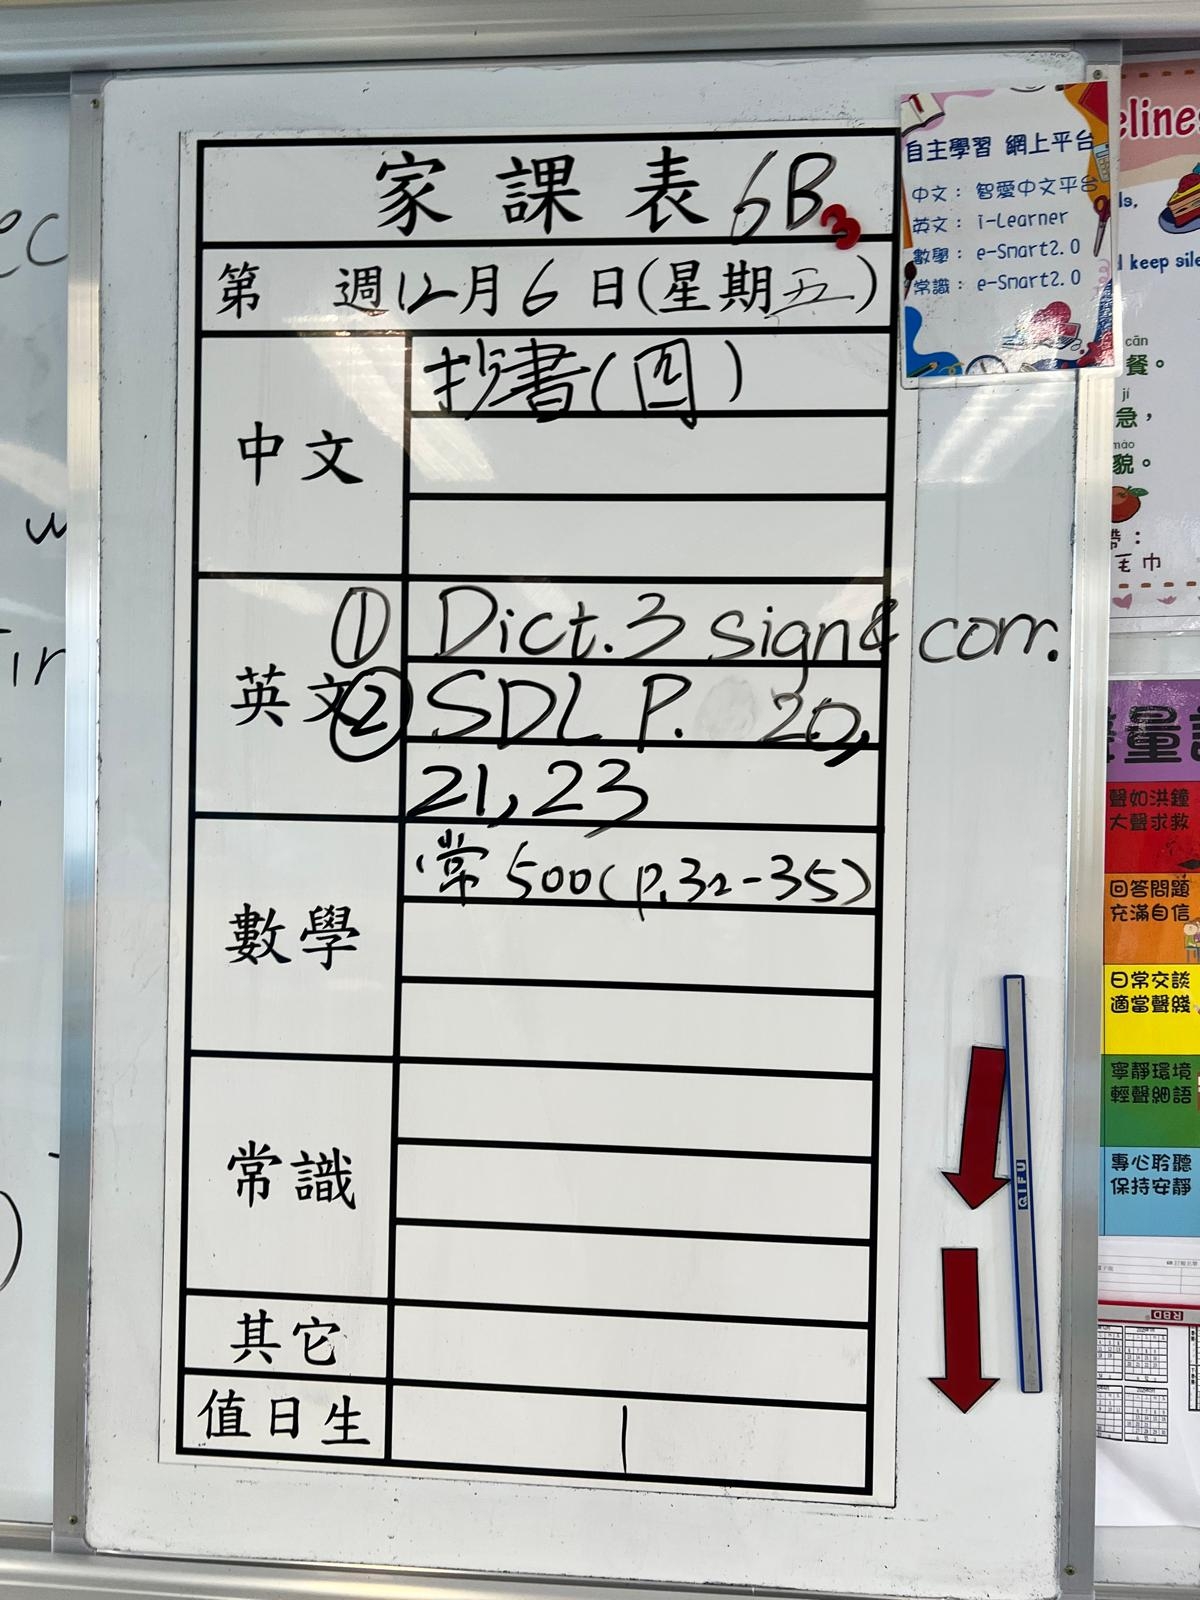 家課表 6B
3
第 週12月6日(星期五)
中文
抄書(四)
英文
① Dict.3 sign & corr.
② SDL P. 20,
21,23
數學
常500(p.32-35)
常識
其它
值日生
1
自主學習 網上平台
中文： 智愛中文平台
英文： i-Learner
數學： e-Smart2.0
常識： e-Smart2.0
keep sile
cān
餐。
jí
急，
mào
貌。
毛巾
量
聲如洪鐘
大聲求救
回答問題
充滿自信
日常交談
適當聲綫
寧靜環境
輕聲細語
專心聆聽
保持安靜
QIFU
RBD